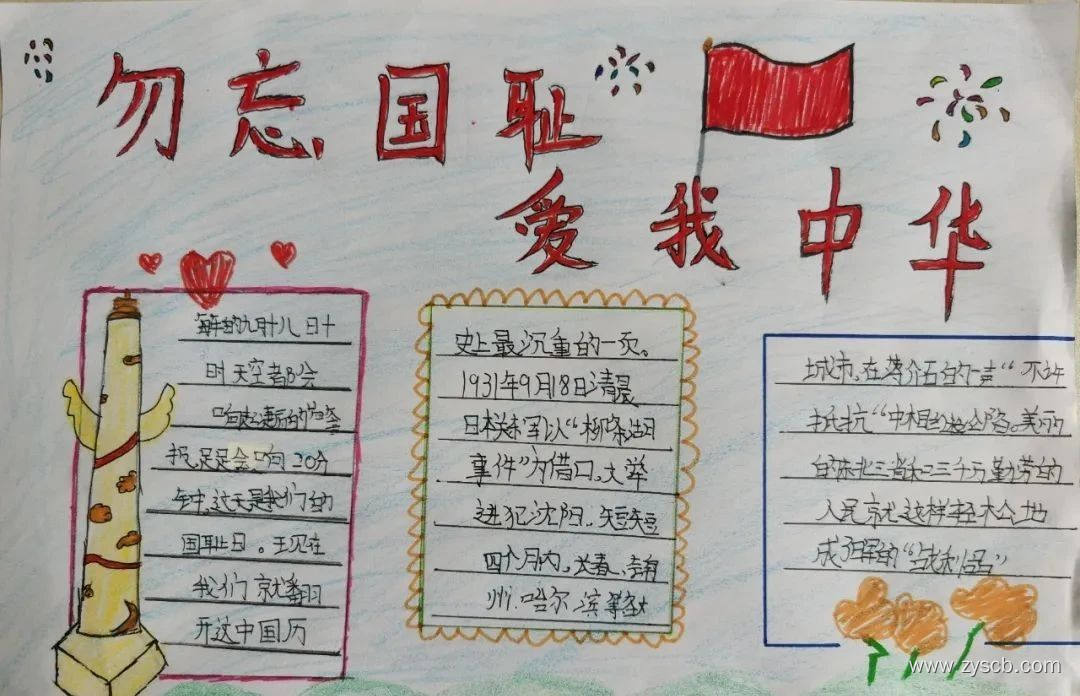 勿忘国耻
爱我中华
每年的九月十八日十
时天空都会
响起凄厉的警
报,足足会响20分
钟,这天是我们的
国耻日。现在
我们就翻
开这中国历
史上最沉重的一页。
1931年9月18日清晨
日本关东军以“柳条湖
事件”为借口,大举
进犯沈阳.短短
四个月内,长春、
州、哈尔滨等
城市,在蒋介石的一声“不许
抵抗”中相继沦陷。美丽
的东北三省和三千万勤劳的
人民就这样轻松地
成了日军的“战利品”
www.zyscb.com